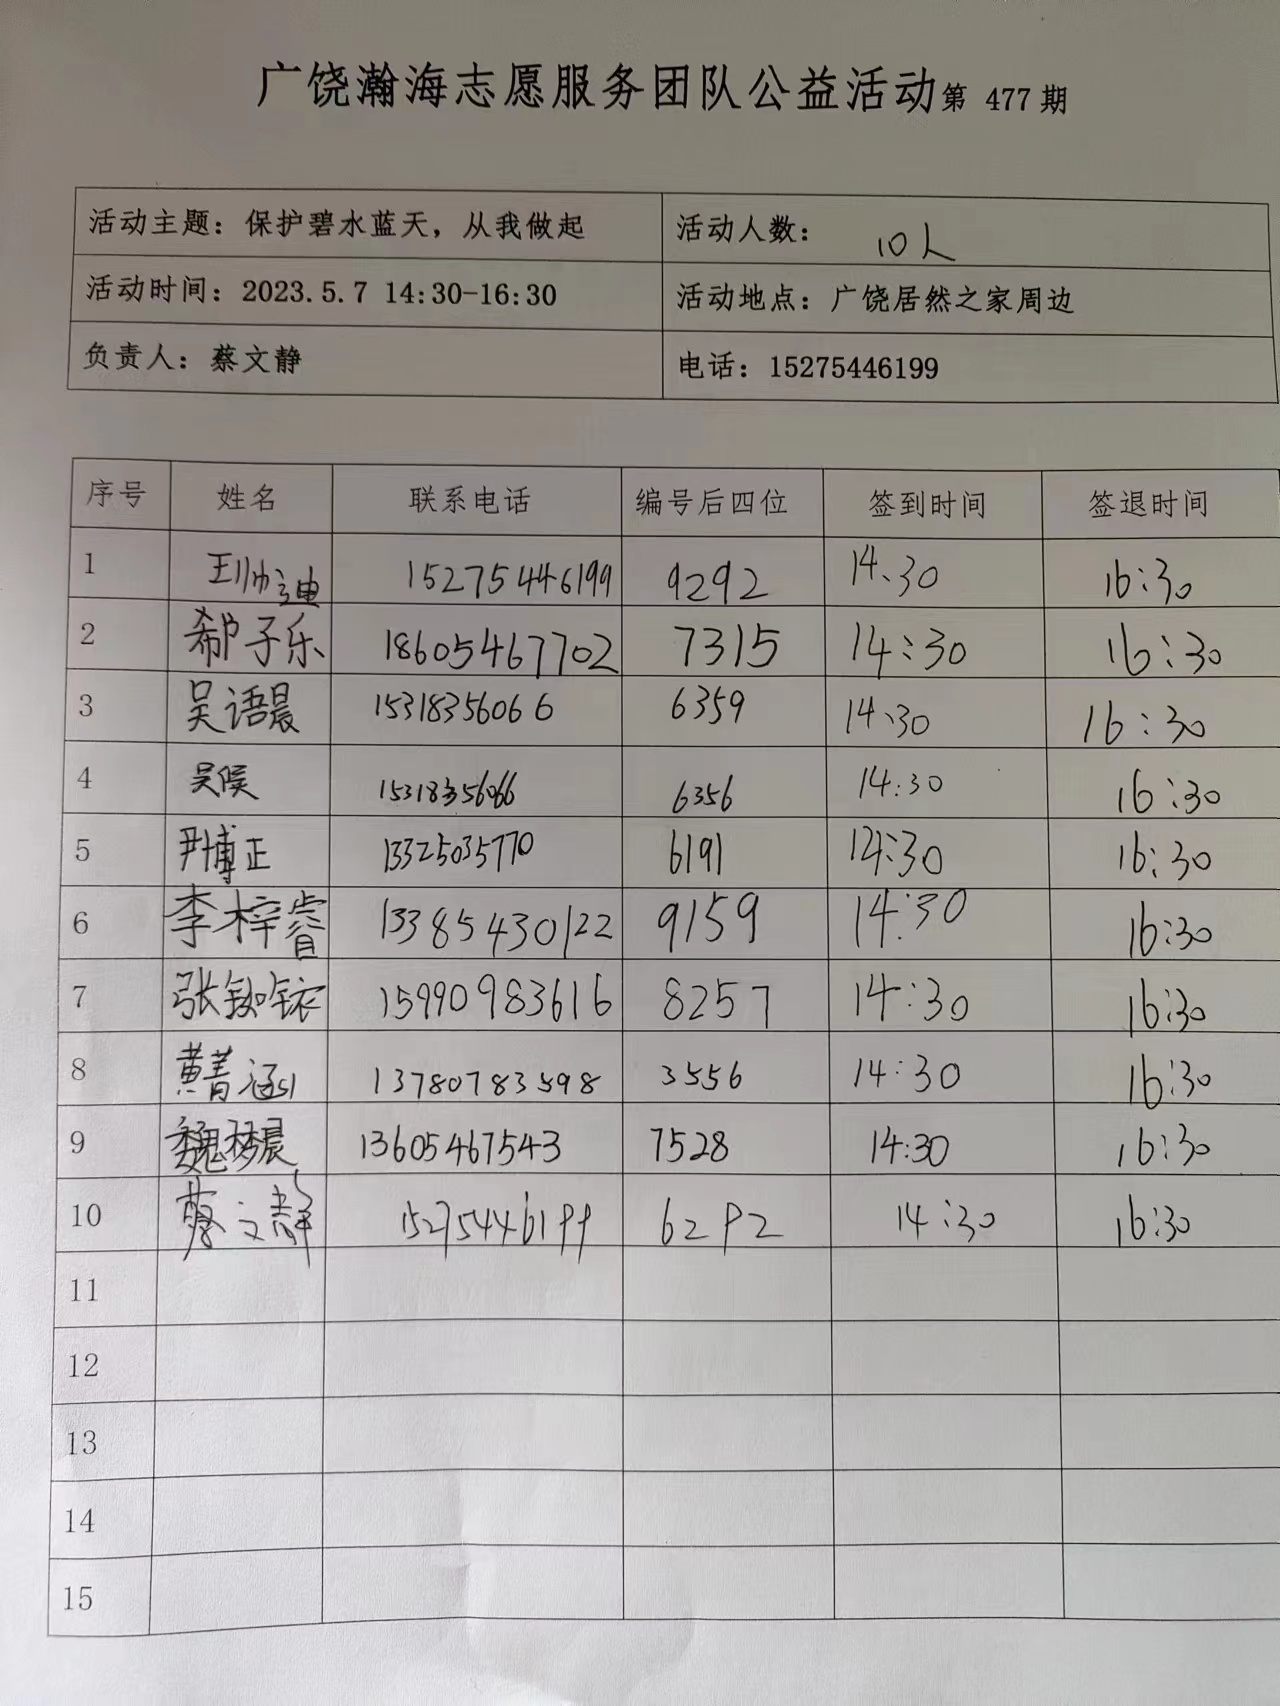 广饶瀚海志愿服务团队公益活动第 477 期
活动主题：保护碧水蓝天，从我做起 活动人数： 10人
活动时间：2023.5.7 14:30-16:30 活动地点：广饶居然之家周边
负责人：蔡文静 电话：15275446199
序号 姓名 联系电话 编号后四位 签到时间 签退时间
1 王帅迪 15275446199 9292 14:30 16:30
2 郗子乐 18605467702 7315 14:30 16:30
3 吴语晨 15318356066 6359 14:30 16:30
4 吴俣 15318356066 6356 14:30 16:30
5 尹博正 13325035770 6191 14:30 16:30
6 李梓睿 13385430122 9159 14:30 16:30
7 张 15990983616 8257 14:30 16:30
8 黄菁涵 13780783598 3556 14:30 16:30
9 魏梦晨 13605467543 7528 14:30 16:30
10 蔡文静 15275446199 6292 14:30 16:30
11
12
13
14
15